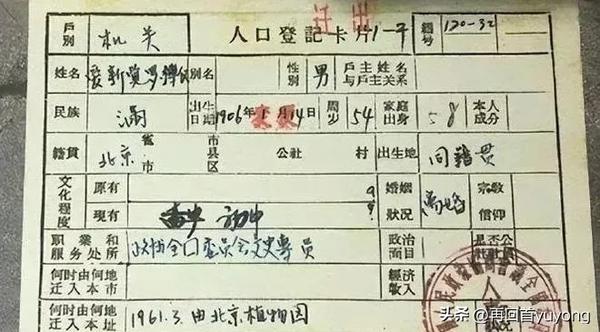 迁出
戶別 机关 人口登記卡片1-子 編号 120-32
姓名 爱新觉罗溥仪 別名 性別 男 戶主姓名与戶主关系
民族 满 出生日期 1906年 月14日 周岁 54 家庭出身 本人成分
籍貫 北京 省市 市县区 公社 村 出生地 同籍贯
文化程度 原有 婚姻狀況 离婚 宗敎信仰
現有 初中
职業和服务处所 政协全口委员会文史專员 政治面目 是否公社社員
何时由何地迁入本市 經济收入
何时由何地迁入本址 1961.3.由北京植物园
头条 @再回首yuyong